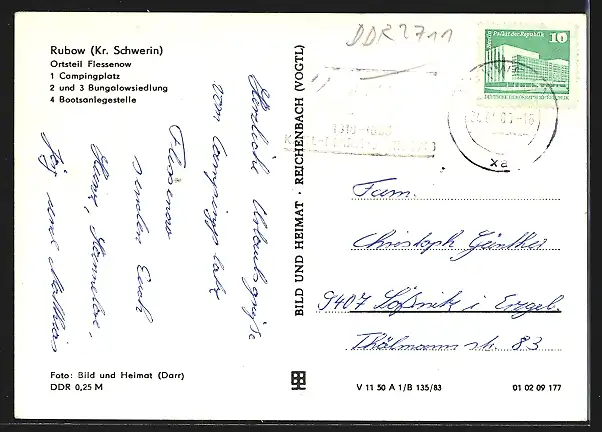 Rubow (Kr. Schwerin)
Ortsteil Flessenow
1 Campingplatz
2 und 3 Bungalowsiedlung
4 Bootsanlegestelle
Herzliche Urlaubsgrüße
vom Campingplatz
Flessenow
senden Euch
Heinz, Hannelore,
und Matthias
Foto: Bild und Heimat (Darr)
DDR 0,25 M
BILD UND HEIMAT · REICHENBACH (VOGTL)
DDR 2711
Berlin, Palast der Republik
10
DEUTSCHE DEMOKRATISCHE REPUBLIK
xa
Fam.
Christoph Günther
9407 Lößnitz i. Erzgeb.
Thälmannstr. 83
V 11 50 A 1/B 135/83
01 02 09 177